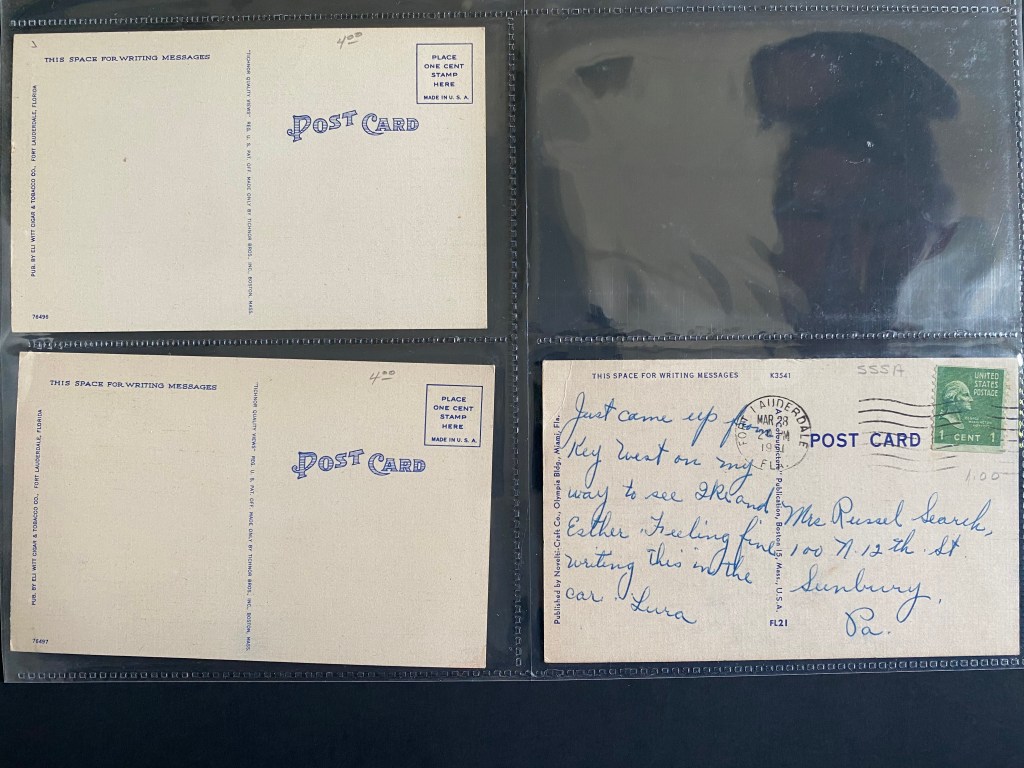 4.00
THIS SPACE FOR WRITING MESSAGES
PLACE
ONE CENT
STAMP
HERE
MADE IN U. S. A.
POST CARD
PUB. BY ELI WITT CIGAR & TOBACCO CO., FORT LAUDERDALE, FLORIDA
"TICHNOR QUALITY VIEWS" REG. U. S. PAT. OFF. MADE ONLY BY TICHNOR BROS., INC., BOSTON, MASS.
76496
4.00
THIS SPACE FOR WRITING MESSAGES
PLACE
ONE CENT
STAMP
HERE
MADE IN U. S. A.
POST CARD
PUB. BY ELI WITT CIGAR & TOBACCO CO., FORT LAUDERDALE, FLORIDA
"TICHNOR QUALITY VIEWS" REG. U. S. PAT. OFF. MADE ONLY BY TICHNOR BROS., INC., BOSTON, MASS.
76497
THIS SPACE FOR WRITING MESSAGES K3541
SSSA
UNITED
STATES
POSTAGE
1 CENT 1
1.00
FORT LAUDERDALE
MAR 28
PM
FLA.
POST CARD
Published by Novelti-Craft Co., Olympia Bldg., Miami, Fla.
A "Colourpicture" Publication, Boston 15, Mass., U.S.A.
FL21
Just came up from
Key West on my
way to see Ike and
Esther. Feeling fine
writing this in the
car. Lura
Mrs Russel Search,
100 N. 12th. St
Sunbury,
Pa.